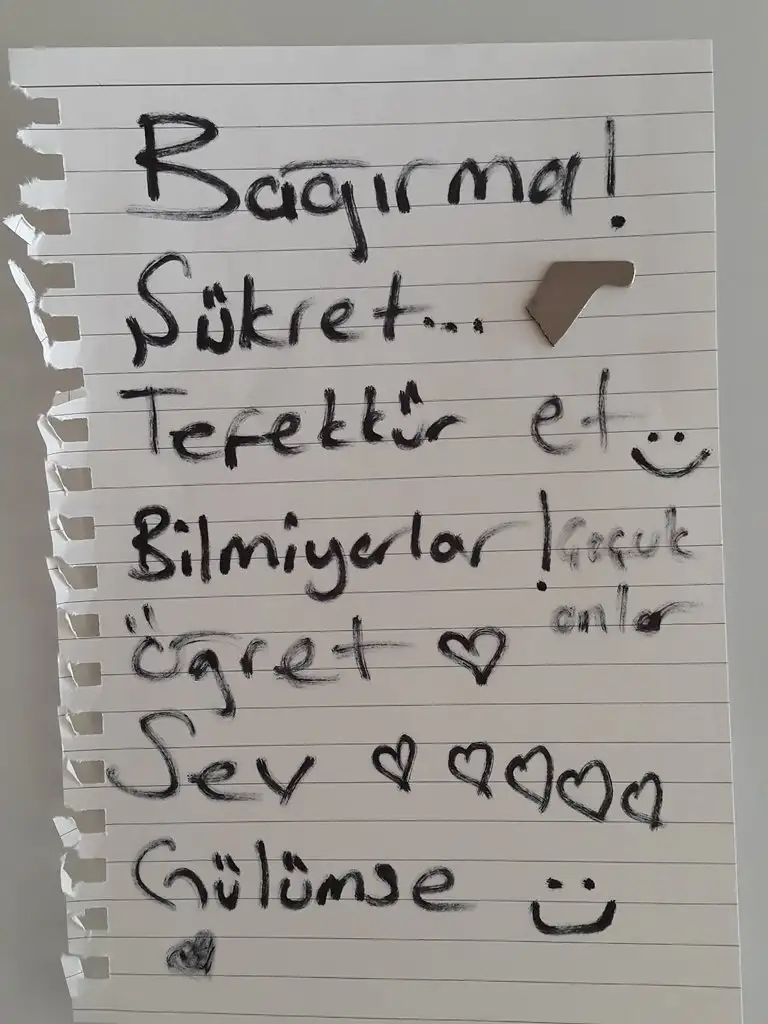 Bağırma!
Şükret...
Tefekkür et
Bilmiyorlar! Çocuk
onlar
Öğret
Sev
Gülümse